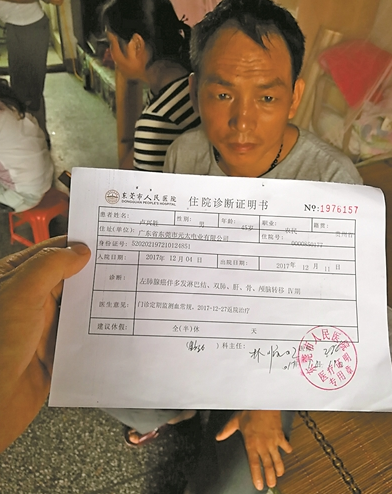 东莞市人民医院
DONGGUAN PEOPLE'S HOSPITAL
住院诊断证明书
No: 1976157
患者姓名 性别: 男 年龄: 45岁 职业: 农民 籍贯:
住址(单位) 广东省东莞市元太电业有限公司 住院号:
身份证号:
入院日期 2017年 12月 04日 出院日期 2017年 12月 11日
诊断: 左肺腺癌伴多发淋巴结、双肺、肝、骨、颅脑转移 IV期
医生意见: 门诊定期监测血常规,2017-12-27返院治疗
建议休假: 全(半)休 天
科主任:
东莞市人民医院
医疗证明
专用章